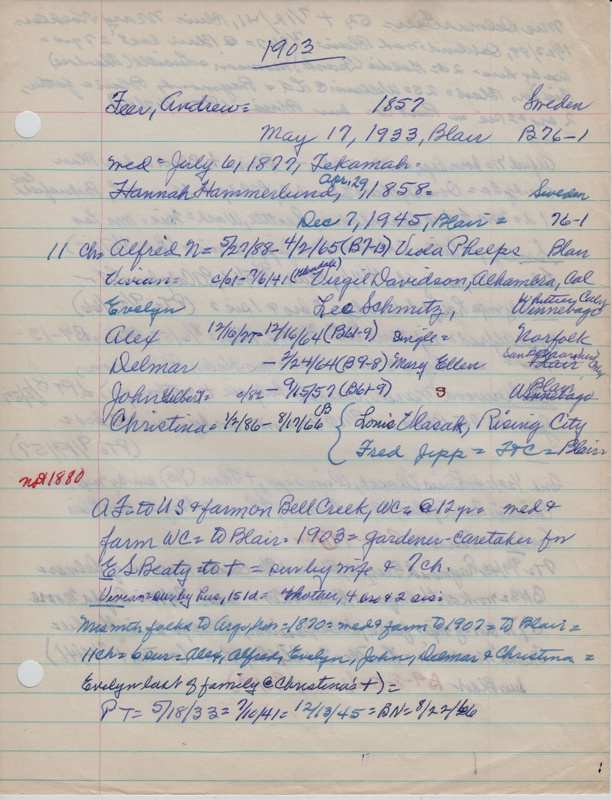 1903
Feer, Andrew = 1857 Sweden
May 17, 1933, Blair B76-1
med = July 6, 1877, Tekamah =
Hannah Hammerlund, Apr. 29, 1858 = Sweden
Dec 7, 1945, Blair = 76-1
11 ch = Alfred N = 5/27/88 - 4/2/65 (B7-13) Viola Phelps Blair
Vivian = c/61 - 7/6/41 (Glendale) Virgil Davidson, Alhambra, Cal
Evelyn Leo Schmitz, Whittier, Calif Winnebago
Alex 12/16/77 - 12/16/64 (B61-9) single = Norfolk
Delmar - 2/24/64 (B9-8) Mary Ellen San Bernardino Blair
John Gilbert = c/82 - 9/15/57 (B61-9) S Blair Winnebago
Christina = 1/2/86 - 8/17/66 (B { Louis Vlasak, Rising City
Fred Jipp = F+C = Blair =
not 1880
A F = to U S & farm on Bell Creek, WC = @ 12 yr = med &
farm WC = to Blair = 1903 = gardener-caretaker for
E S Beaty = to + = sur by wife & 7 ch.
Vivian = sur by hus, 1 s 1 d = mother, 4 bro & 2 sis =
Mrs with folks to Argo, = 1870 = med & farm to 1902 = to Blair =
11 ch = 6 sur = Alex, Alfred, Evelyn, John, Delmar & Christina =
Evelyn last of family @ Christina's +) =
P T = 5/18/33 = 7/10/41 = 12/13/45 = BN = 8/22/66